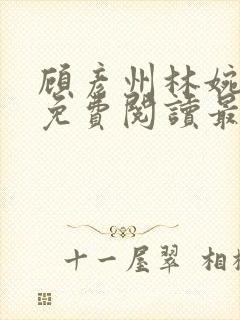 顧彥州林婉
免費閱讀最
十一屋翠 相